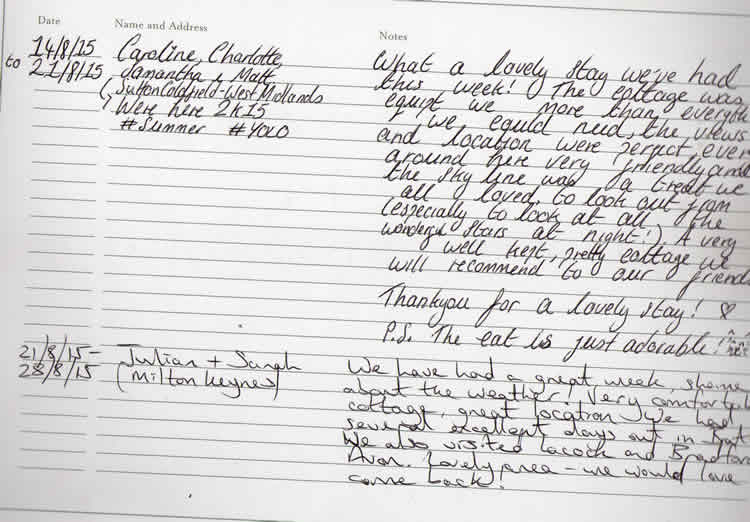 Date Name and Address Notes
14/8/15 Caroline, Charlotte,
to 21/8/15 Samantha & Matt
(Sutton Coldfield-West Midlands
Were here 2K15
#Summer #YOLO
What a lovely stay we've had
this week! The cottage was
equipt w more than everyth
we could need, the views
and location were perfect, ever
around here very friendly and
the sky line was a treat we
all loved to look out from
(especially to look at all the
wonderful stars at night!). A very
well kept, pretty cottage we
will recommend to our friend
Thankyou for a lovely stay! ♡
P.S. The cat is just adorable!
21/8/15 - Julian + Sarah
28/8/15 (Milton Keynes)
We have had a great week, shame
about the weather! Very comfortabl
cottage, great location. We have
several excellent days out in Bat
We also visited Lacock and Bradford
Avon. Lovely area - we would love
come back!